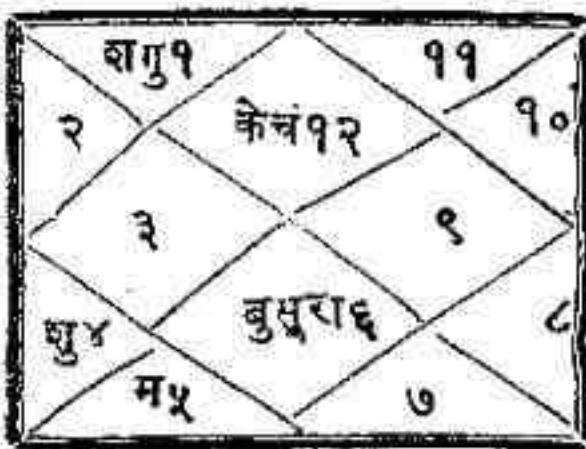 शगु१
११
२
केचं१२
१०
३
९
शु४
बुसूरा६
८
म५
७